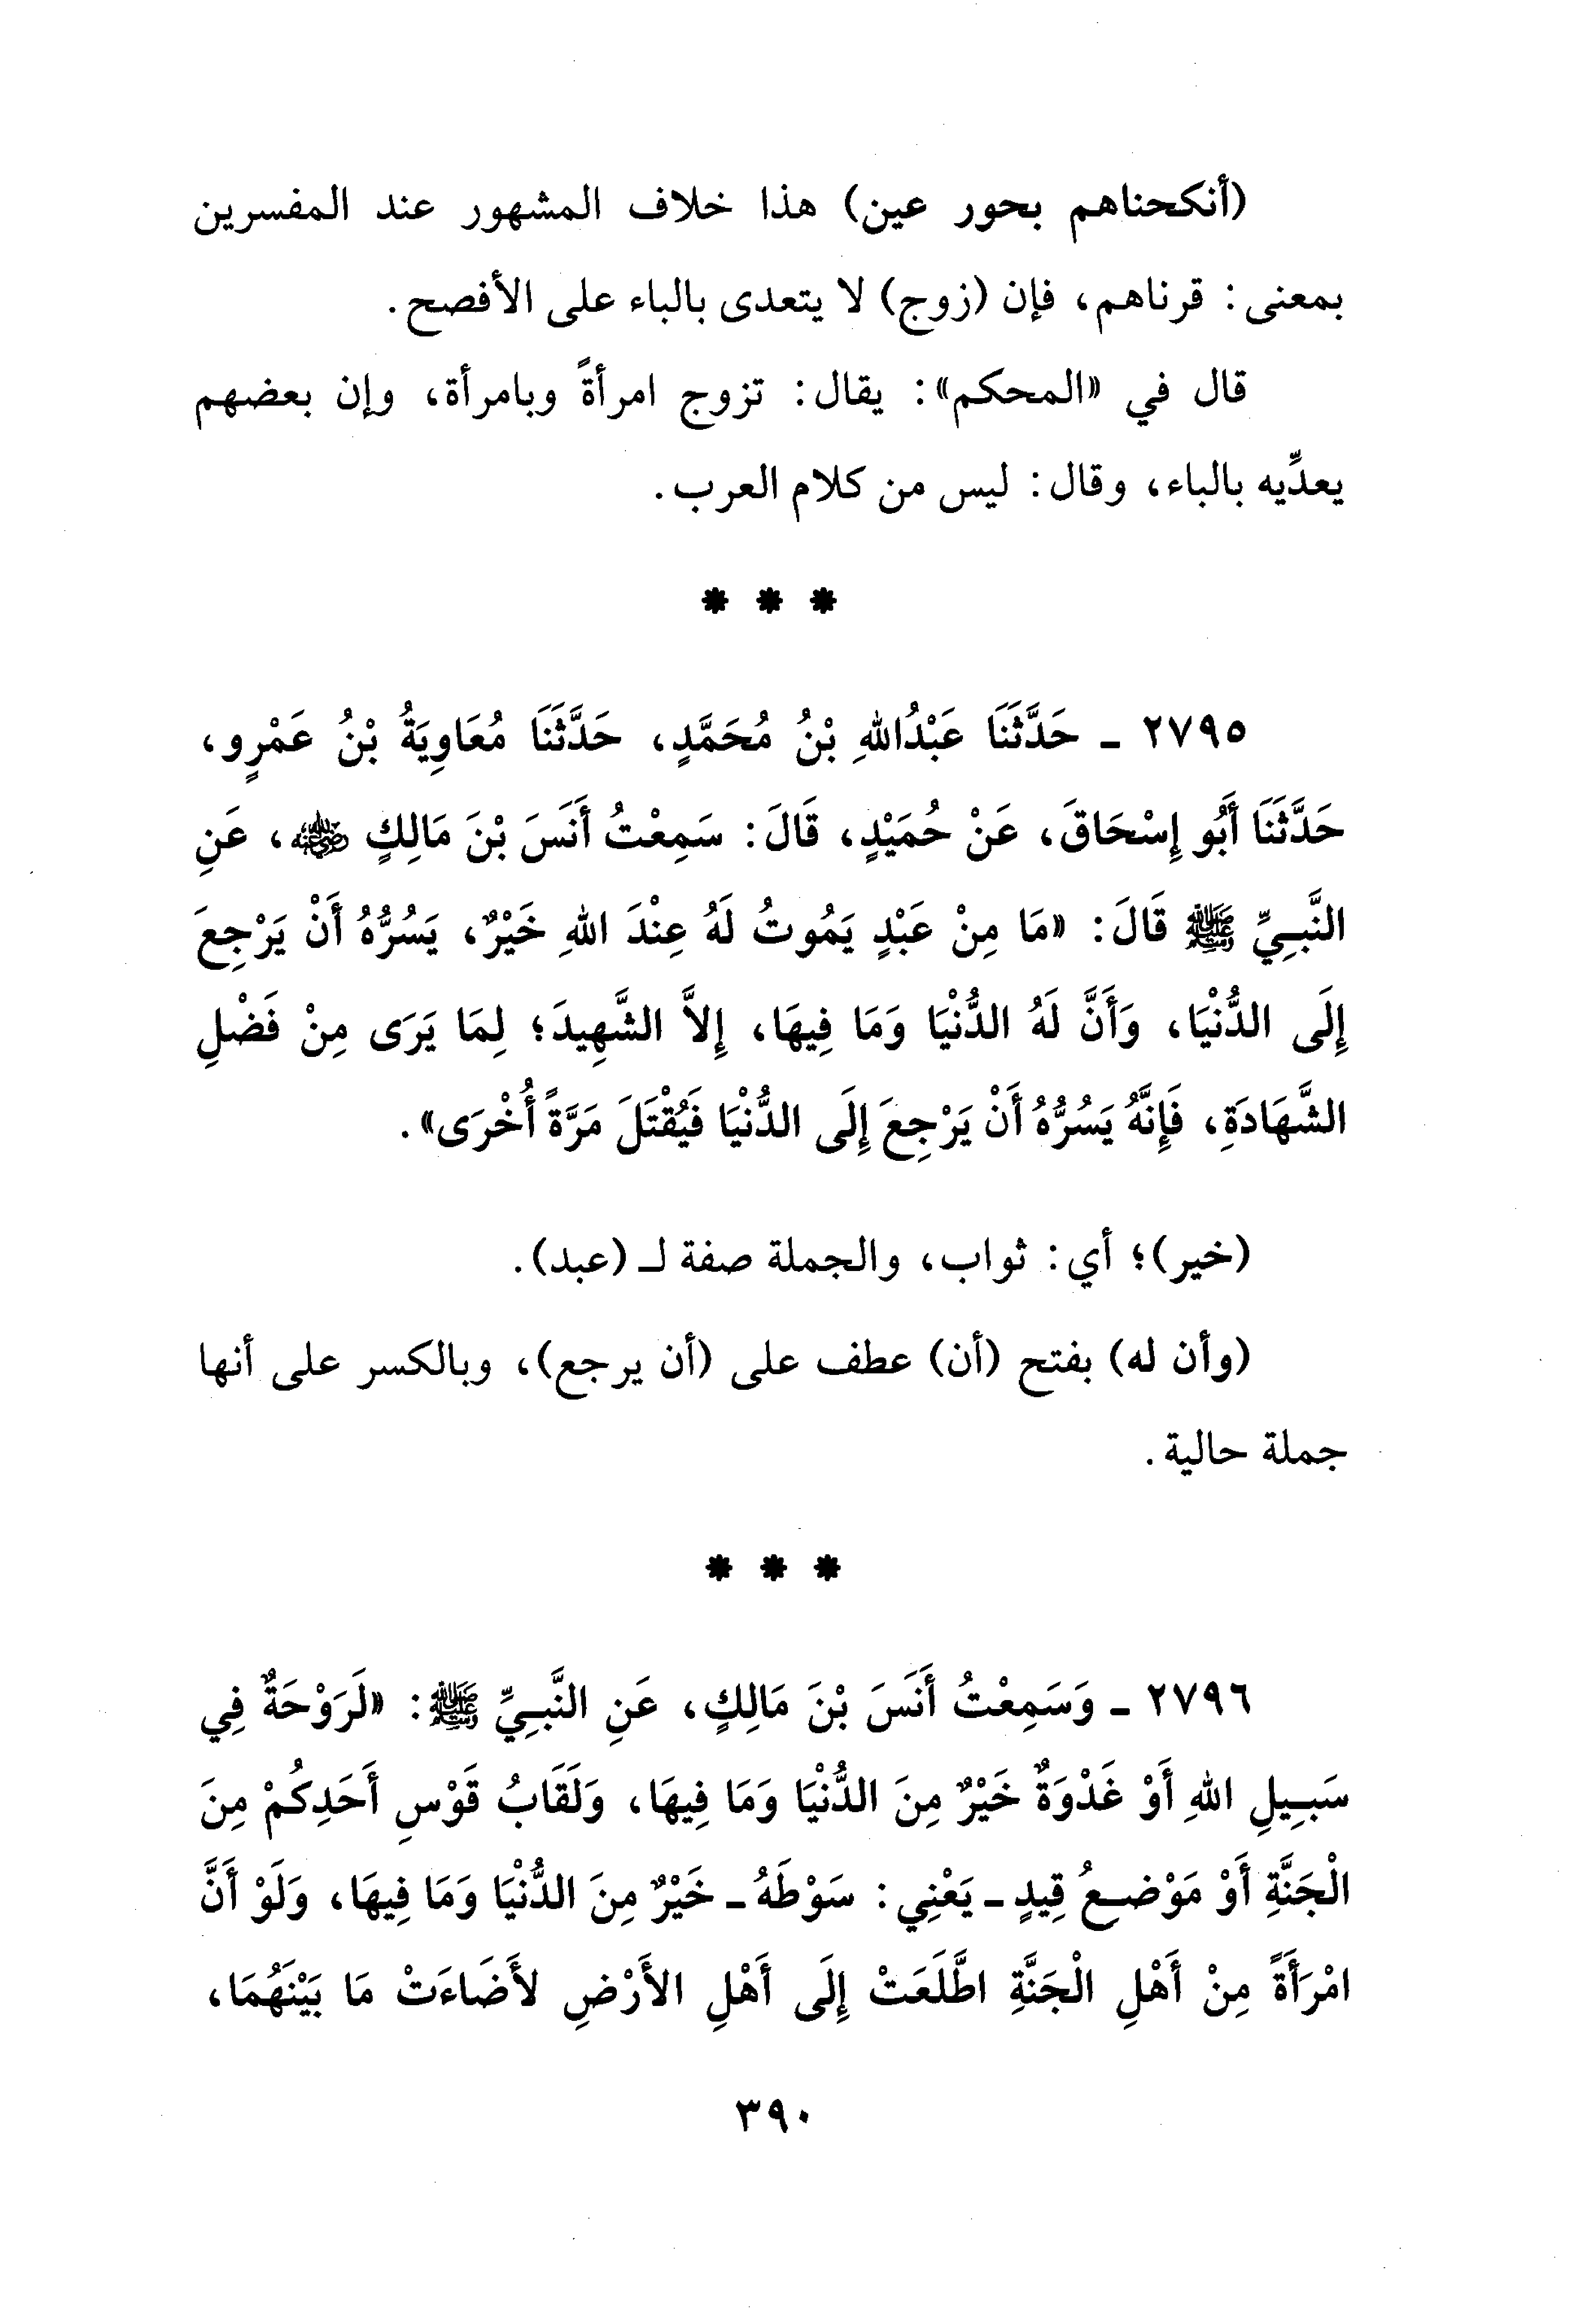 (أنكحناهم بحور عين) هذا خلاف المشهور عند المفسرين
بمعنى: قرناهم، فإن (زوج) لا يتعدى بالباء على الأفصح.
قال في «المحكم»: يقال: تزوج امرأةً وبامرأة، وإن بعضهم
يعدِّيه بالباء، وقال: ليس من كلام العرب.
* * *
٢٧٩٥ ـ حَدَّثَنَا عَبْدُاللهِ بْنُ مُحَمَّدٍ، حَدَّثَنَا مُعَاوِيَةُ بْنُ عَمْرٍو،
حَدَّثَنَا أَبُو إِسْحَاقَ، عَنْ حُمَيْدٍ، قَالَ: سَمِعْتُ أَنَسَ بْنَ مَالِكٍ رضي الله عنه، عَنِ
النَّبِيِّ ﷺ قَالَ: «مَا مِنْ عَبْدٍ يَمُوتُ لَهُ عِنْدَ اللهِ خَيْرٌ، يَسُرُّهُ أَنْ يَرْجِعَ
إِلَى الدُّنْيَا، وَأَنَّ لَهُ الدُّنْيَا وَمَا فِيهَا، إِلاَّ الشَّهِيدَ؛ لِمَا يَرَى مِنْ فَضْلِ
الشَّهَادَةِ، فَإِنَّهُ يَسُرُّهُ أَنْ يَرْجِعَ إِلَى الدُّنْيَا فَيُقْتَلَ مَرَّةً أُخْرَى».
(خير)؛ أي: ثواب، والجملة صفة لـ (عبد).
(وأن له) بفتح (أن) عطف على (أن يرجع)، وبالكسر على أنها
جملة حالية.
* * *
٢٧٩٦ ـ وَسَمِعْتُ أَنَسَ بْنَ مَالِكٍ، عَنِ النَّبِيِّ ﷺ: «لَرَوْحَةٌ فِي
سَبِيلِ اللهِ أَوْ غَدْوَةٌ خَيْرٌ مِنَ الدُّنْيَا وَمَا فِيهَا، وَلَقَابُ قَوْسِ أَحَدِكُمْ مِنَ
الْجَنَّةِ أَوْ مَوْضِعُ قِيدٍ ـ يَعْنِي: سَوْطَهُ ـ خَيْرٌ مِنَ الدُّنْيَا وَمَا فِيهَا، وَلَوْ أَنَّ
امْرَأَةً مِنْ أَهْلِ الْجَنَّةِ اطَّلَعَتْ إِلَى أَهْلِ الأَرْضِ لأَضَاءَتْ مَا بَيْنَهُمَا،
٣٩٠